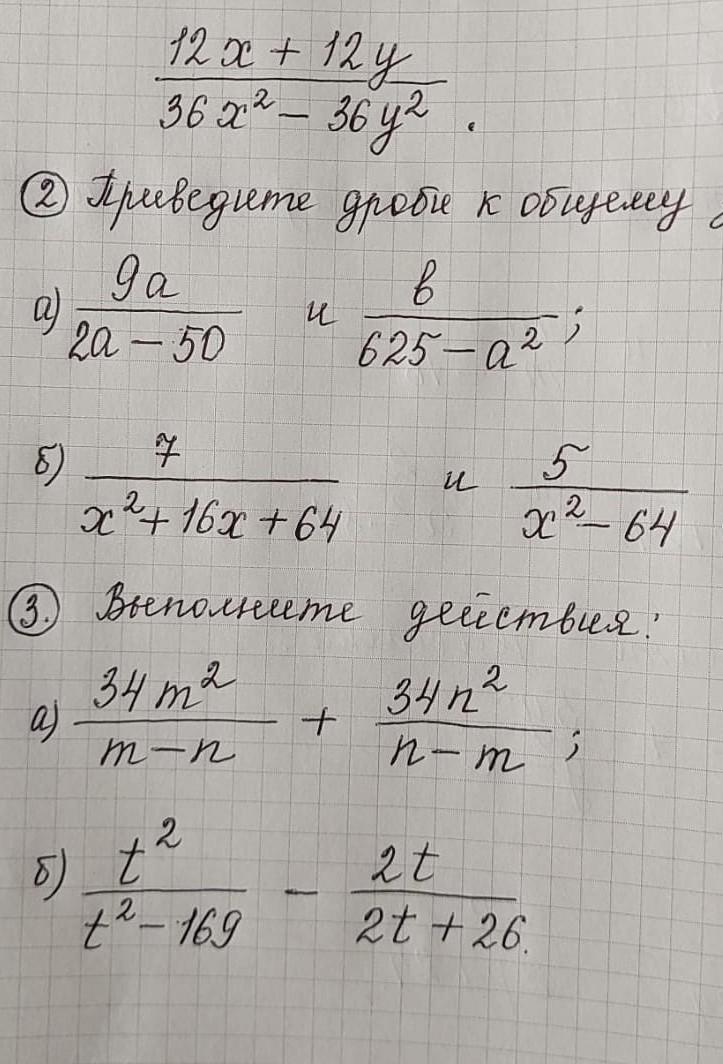 12x + 12y
36x² − 36y² .
② Приведите дроби к общему
а) 9a / (2a − 50) и b / (625 − a²) ;
б) 7 / (x² + 16x + 64) и 5 / (x² − 64)
③. Выполните действия:
а) 34m² / (m − n) + 34n² / (n − m) ;
б) t² / (t² − 169) − 2t / (2t + 26).